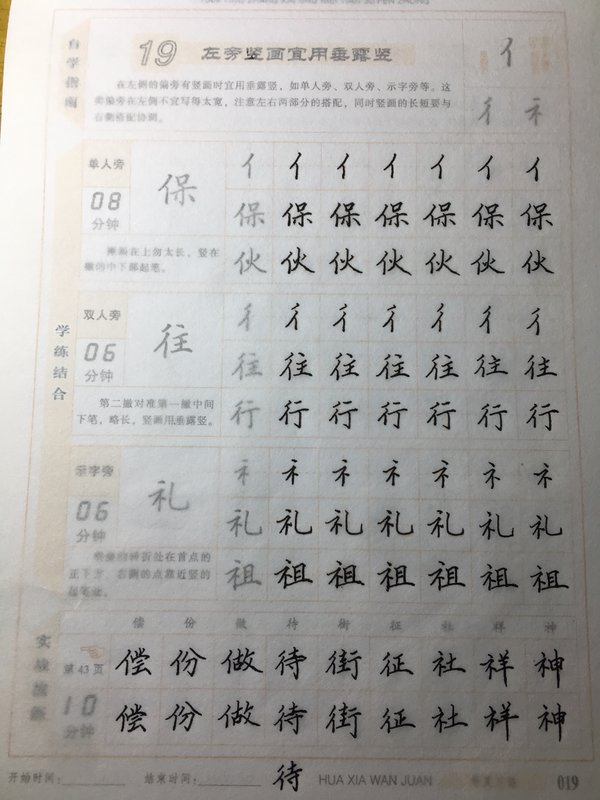 自学指南
19 左旁竖画宜用垂露竖
在左侧的偏旁有竖画时宜用垂露竖，如单人旁、双人旁、示字旁等。这
类偏旁在左侧不宜写得太宽，注意左右两部分的搭配，同时竖画的长短要与
右侧搭配协调。
亻
彳 礻
学练结合
单人旁
08
分钟
保
撇画在上勿太长，竖在
撇的中下部起笔。
亻 亻 亻 亻 亻 亻 亻
保 保 保 保 保 保 保
伙 伙 伙 伙 伙 伙 伙
双人旁
06
分钟
往
第二撇对准第一撇中间
下笔，略长，竖画用垂露竖。
彳 彳 彳 彳 彳 彳 彳
往 往 往 往 往 往 往
行 行 行 行 行 行 行
示字旁
06
分钟
礼
正下方，右侧的点靠近竖的
起笔处。
礻 礻 礻 礻 礻 礻 礻
礼 礼 礼 礼 礼 礼 礼
祖 祖 祖 祖 祖 祖 祖
偿 份 做 待 街 征 社 祥 神
第43页
10
分钟
偿 份 做 待 街 征 社 祥 神
偿 份 做 待 街 征 社 祥 神
待
开始时间：
结束时间：
HUA XIA WAN JUAN
019